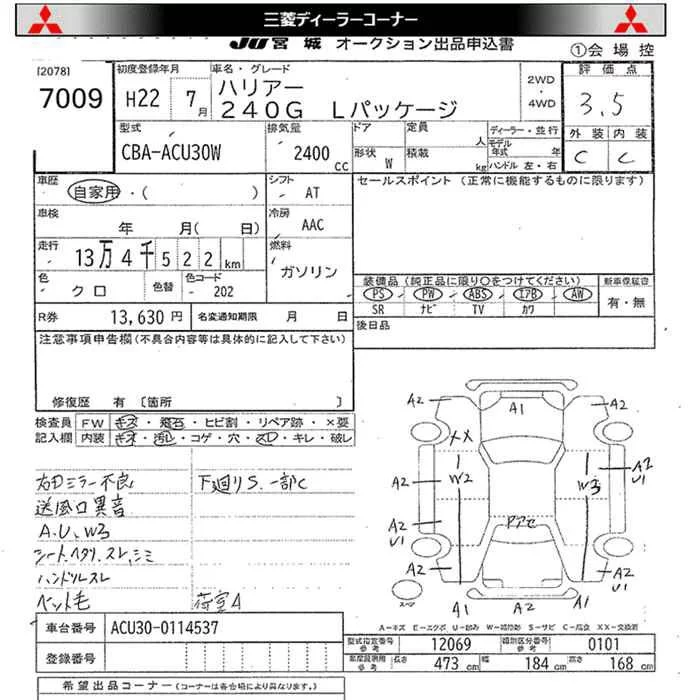 三菱ディーラーコーナー
JU宮城 オークション出品申込書
①会場控
[2078]
7009
初度登録年月
H22 7月
車名・グレード
ハリアー
240G Lパッケージ
2WD
・
4WD
評価点
3.5
外装 内装
C C
型式
CBA-ACU30W
排気量
2400 CC
ドア 定員 人
形状 W 積載 kg
ディーラー・並行
モデル年式 年
ハンドル 左・右
車歴
自家用・( )
シフト
AT
セールスポイント (正常に機能するものに限ります)
車検
年 月( 日)
冷房
AAC
走行
13万4千522km
燃料
ガソリン
色
クロ
色替
色コード
202
装備品 (純正品に限り○をつけてください)
PS PW ABS エアB AW
SR ナビ TV カワ
新車保証書
有・無
R券 13,630円 名変通知期限 月 日
後日品
注意事項申告欄(不具合内容等は具体的に記入して下さい)
修復歴 有 〔箇所 〕
検査員記入欄
FW キズ・飛石・ヒビ割・リペア跡・×要
内装 キズ・汚レ・コゲ・穴・スレ・キレ・破レ
右ドミラー不良
下廻りS.一部C
送風口異音
A.U.W3
シートヘタリ.スレ.シミ
ハンドルスレ
ペット毛
荷室A
A1
A2 A2
XX
W2 W3
A2 A2 U1
A2 U1
ドアモ
A2 A2 U1
A1 A2 A1
スペア
A-キズ E-エクボ U-凹み W-補修跡 S-サビ C-腐食 XX-交換済
車台番号 ACU30-0114537
登録番号
型式指定番号 参考 12069 類別区分番号 参考 0101
長さ 473 cm 幅 184 cm 高さ 168 cm
希望出品コーナー (コーナーは各会場により異なります。)